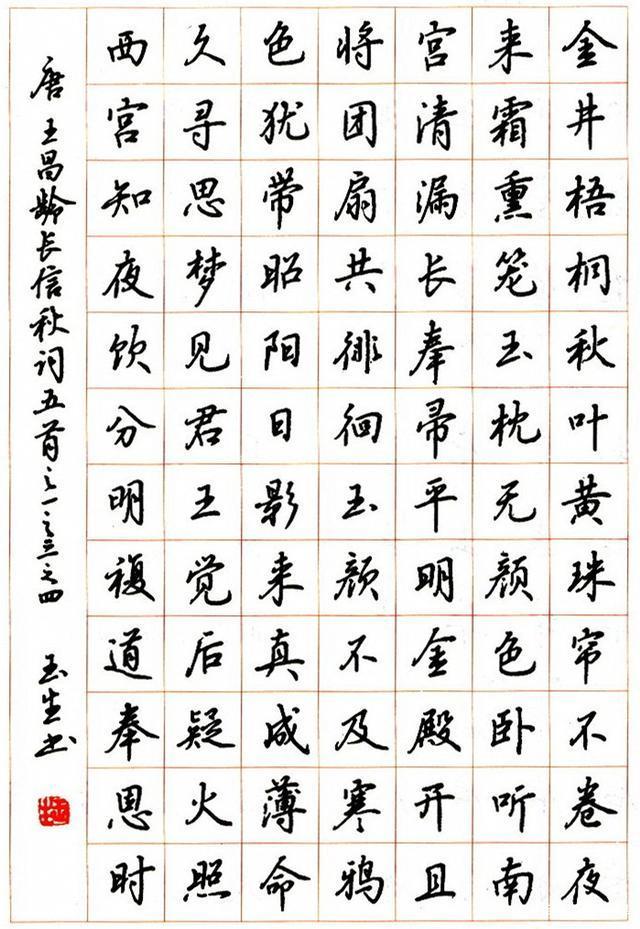 金井梧桐秋叶黄珠帘不卷夜
来霜熏笼玉枕无颜色卧听南
宫清漏长奉帚平明金殿开且
将团扇共徘徊玉颜不及寒鸦
色犹带昭阳日影来真成薄命
久寻思梦见君王觉后疑火照
西宫知夜饮分明複道奉恩时
唐王昌龄长信秋词五首之一之三之四 玉生书